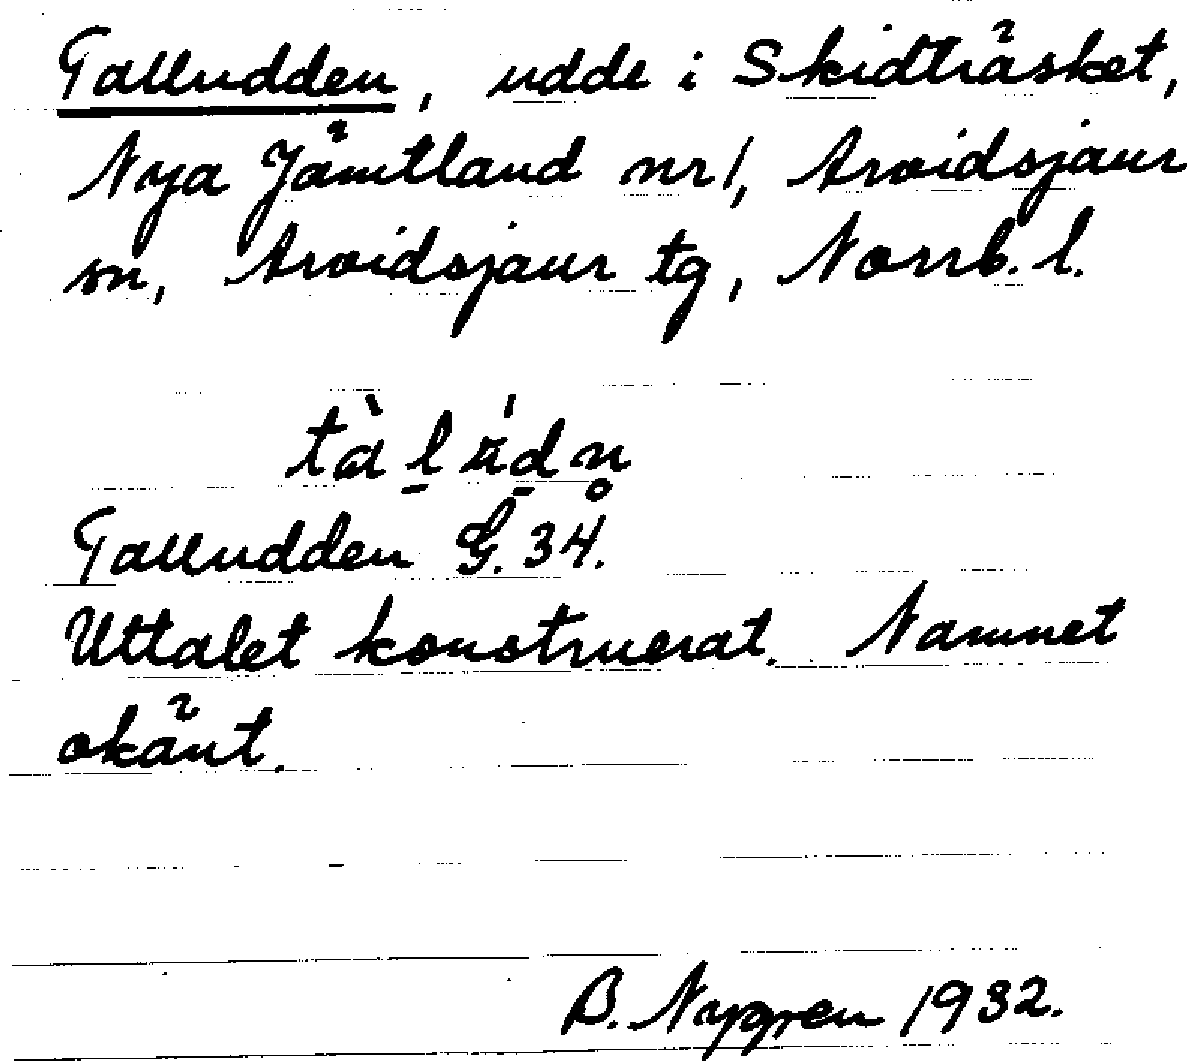 Talludden, udde i Skidträsket,
Nya Jämtland nr 1, Arvidsjaur
sn, Arvidsjaur tg, Norrb. l.
Talludden G. 34.
Uttalet konstruerat. Namnet
okänt.
B. Nygren 1932.